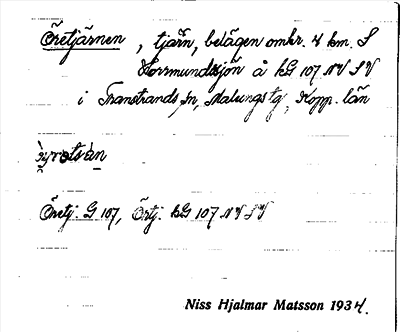 Öretjärnen, tjärn, belägen omkr. 4 km. S
Horrmundsjön å kG 107 NV SV
i Transtrands sn, Malungs tg, Kopp. län
Öretj. G 107, Örtj. kG 107 NV SV
Niss Hjalmar Matsson 1934.